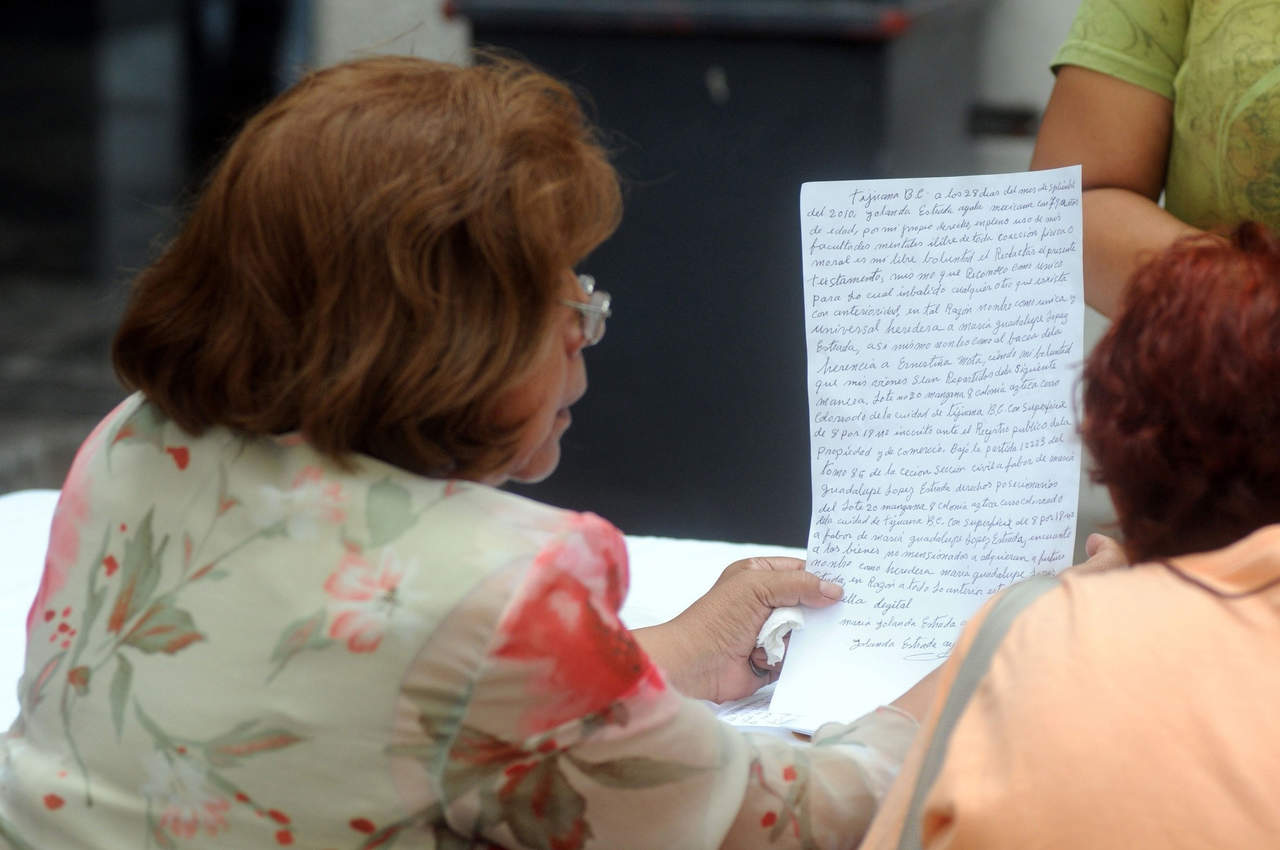 Tijuana B.C. a los 28 dias del mes de septiembre
del 2010. yolanda Estrada ayala mexicana con 79 años
de edad, por mi propio derecho, en pleno uso de mis
facultades mentales i libre de toda coaccion fisica o
moral es mi libre boluntad el Redactar el presente
testamento, mismo que Reconosco como unico
para lo cual inbalido cualquier otro que exista
con anterioridad, en tal Razón nonbro como unica y
universal heredera a maria guadalupe Lopez
Estrada, asi mismo nonbro como al bacea de la
herencia a Ernestina Mota, ciendo mi boluntad
que mis vienes sean Repartidos de la siguiente
manera, Lote no 20 manzana 8 colonia azteca cerro
Colorado de la cuidad de Tijuana B.C. con superficie
de 8 por 19 no inscrito ante el Registro publico de la
Propiedad y de comercio. Bajo la partida
tomo 86 de la cecion sección civil a fabor de maria
guadalupe Lopez Estrada derechos posecionarios
del Lote 20 manzana 8 colonia azteca cerro colorado
de la cuidad de Tijuana B.C. con superficie de 8 por 18 no
a fabor de maria guadalupe Lopez Estrada, encuanto
a los bienes no mensionados o adquieran a futuro
nonbro como heredera maria guadalupe
en Razón a todo lo anterior
ella degital
maria yolanda Estrada
yolanda Estrada